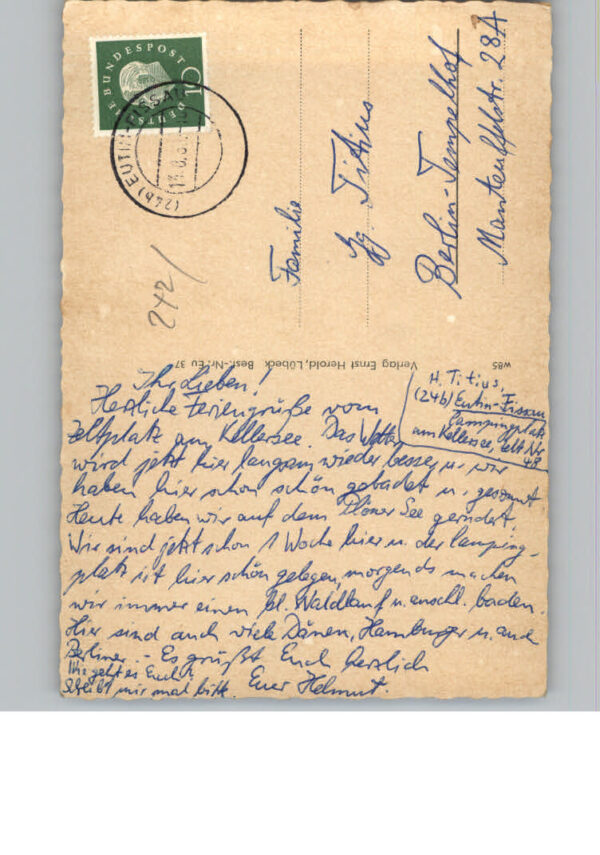 DEUTSCHE BUNDESPOST
10
(24b) EUTIN-FISSAU
242/
Familie
Hg. Titius
Berlin-Tempelhof
Manteuffelstr. 28A
W85 Verlag Ernst Herold, Lübeck Best.-Nr. Eu 37
H. Titius,
(24b) Eutin-Fissau
Campingplatz
am Kellersee, Zelt Nr
48
Ihr Lieben!
Herzliche Feriengrüße vom
Zeltplatz am Kellersee. Das Wetter
wird jetzt hier langsam wieder besser u. wir
haben hier schon schön gebadet u. gesonnt
Heute haben wir auf dem Plöner See gerudert.
Wir sind jetzt schon 1 Woche hier u. der Camping-
platz ist hier schön gelegen, morgends machen
wir immer einen kl. Waldlauf u. anschl. baden.
Hier sind auch viele Dänen, Hamburger u. auch
Berliner. - Es grüßt Euch herzlich
Wie geht es Euch?
Schreibt mir mal bitte. Euer Helmut.